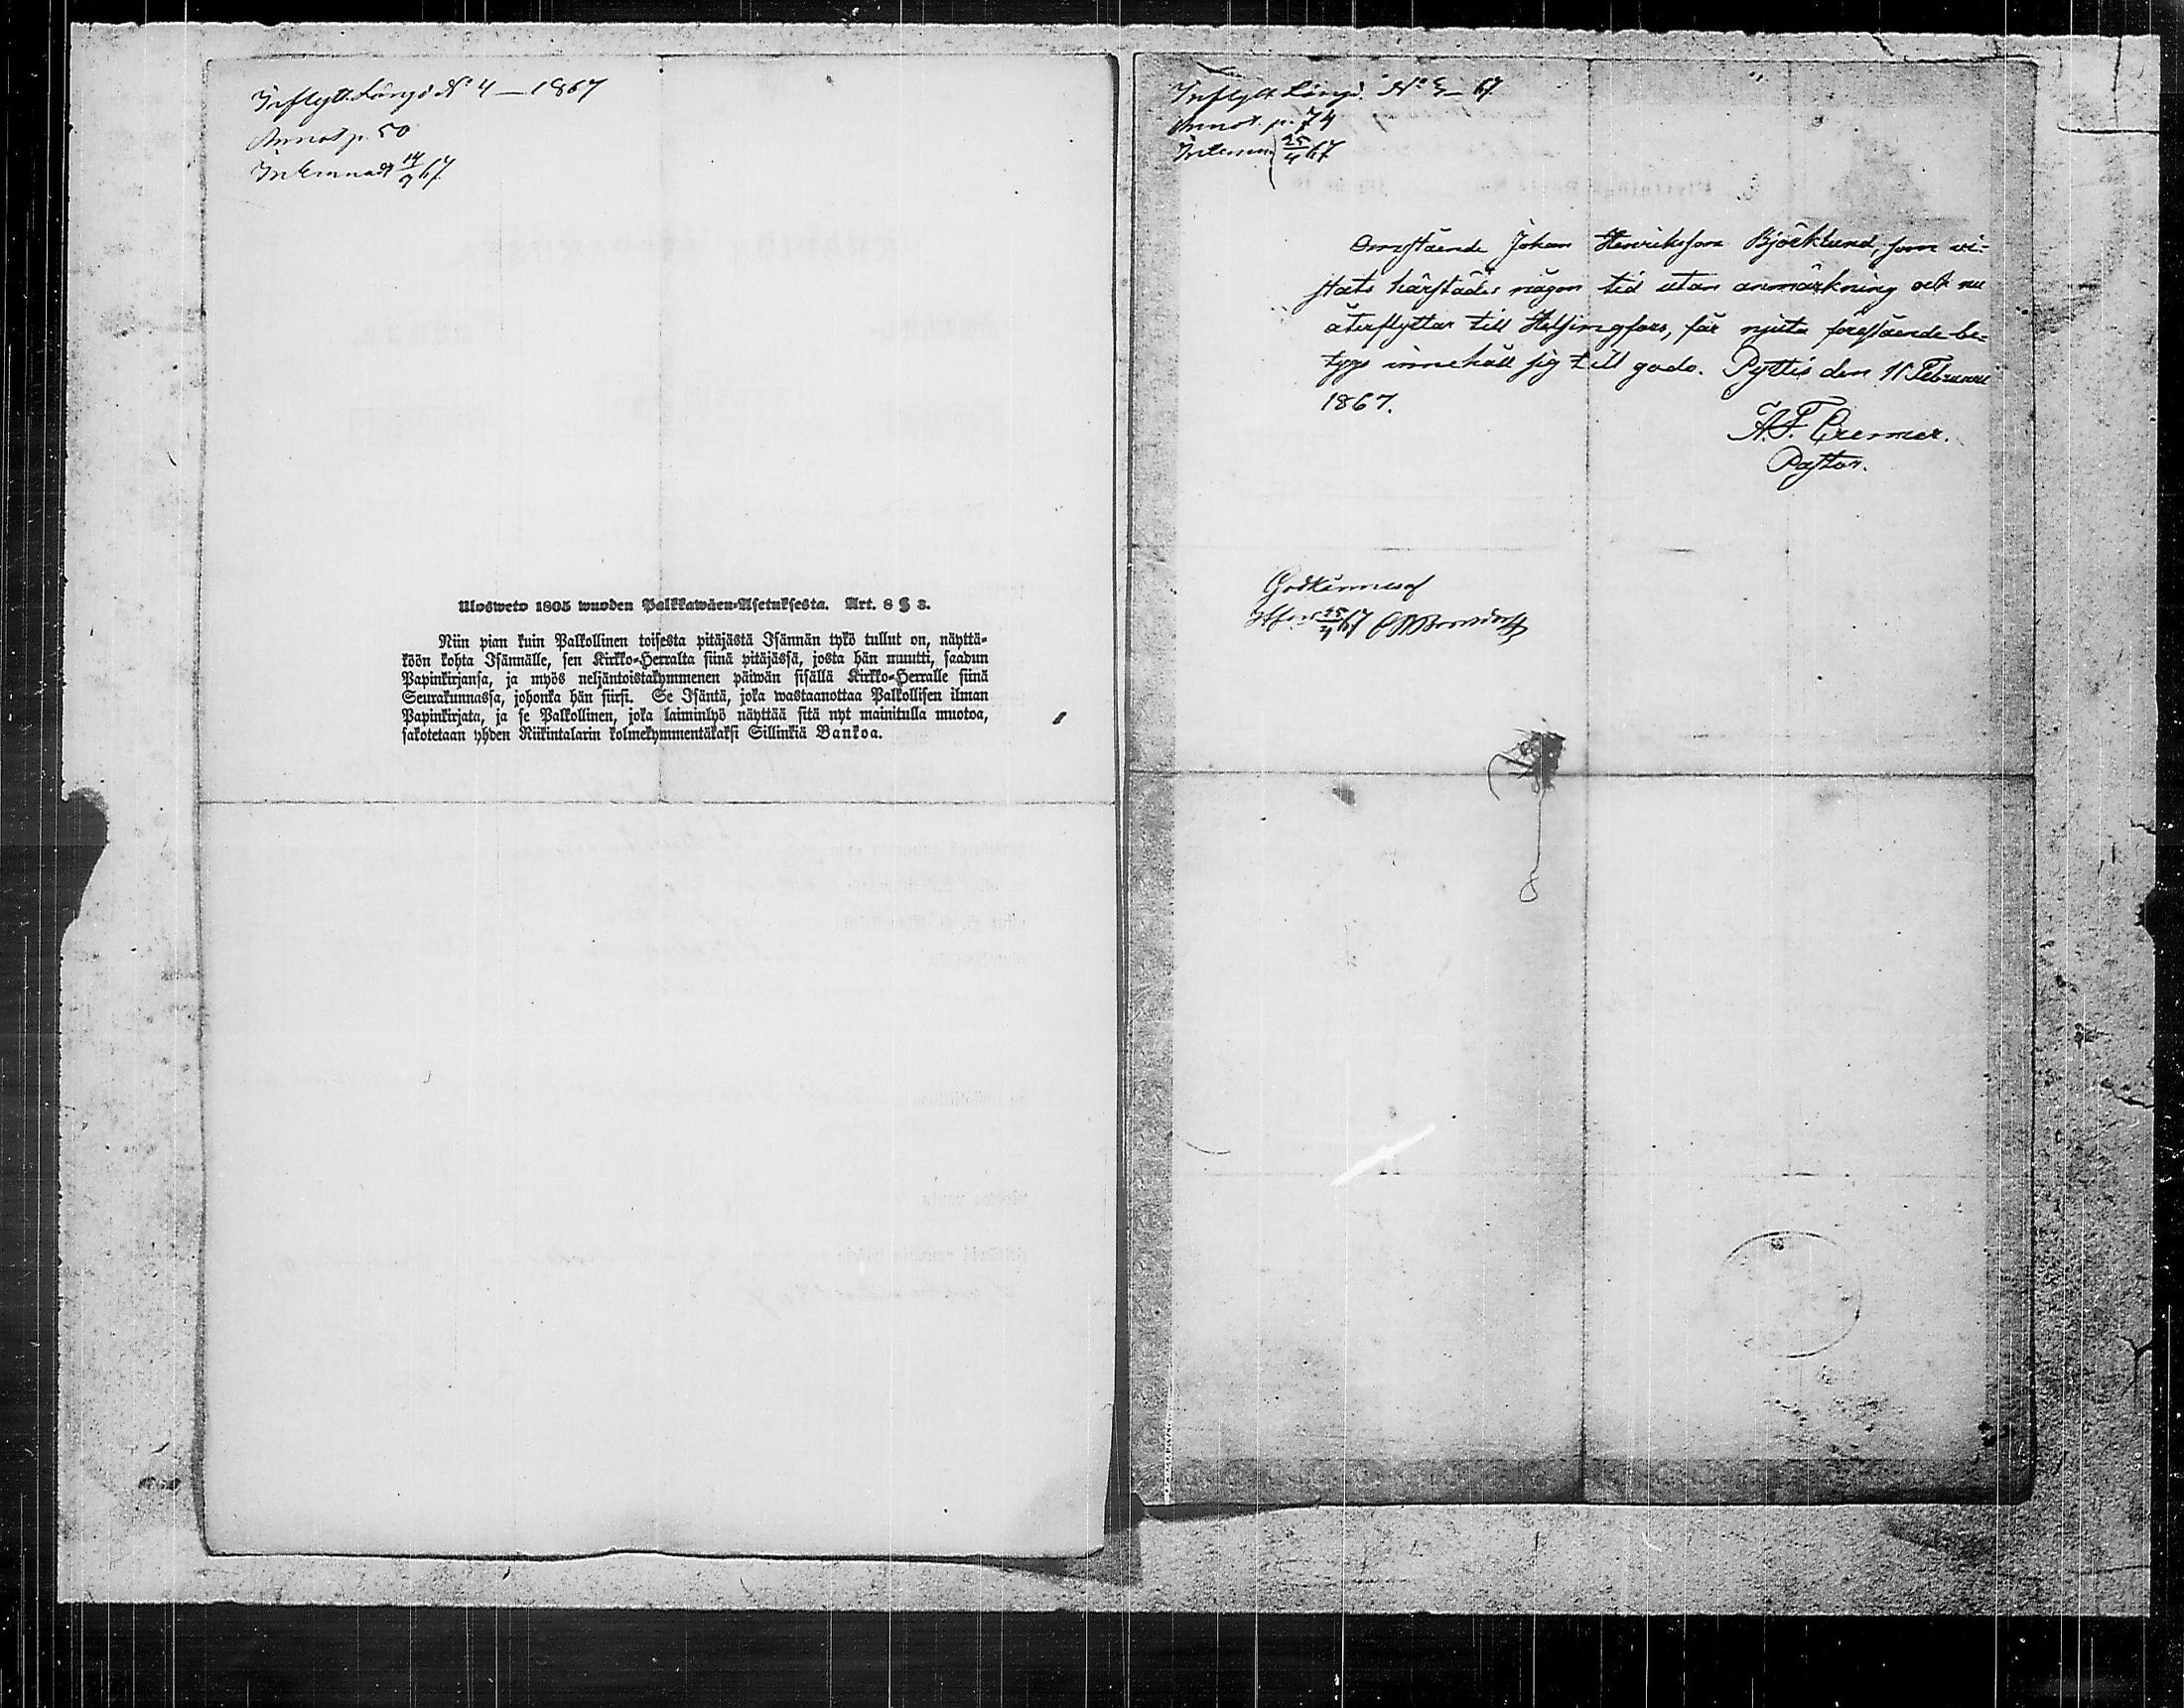 Inflytt. Längd Nº 4 — 1867
Annot p. 50
Inlemnadt 14/9 67.
Ulosweto 1805 wuoden Palkkawäen-Asetuksesta. Art. 8 § 3.
Niin pian kuin Palkollinen toisesta pitäjästä Isännän tykö tullut on, näyttä-
köön kohta Isännälle, sen Kirkko-Herralta siinä pitäjässä, josta hän muutti, saadun
Papinkirjansa, ja myös neljäntoistakymmenen päiwän sisällä Kirkko-Herralle siinä
Seurakunnassa, johonka hän siirsi. Se Isäntä, joka wastaanottaa Palkollisen ilman
Papinkirjata, ja se Palkollinen, joka laiminlyö näyttää sitä nyt mainitulla muotoa,
sakotetaan yhden Riikintalarin kolmekymmentäkaksi Sillinkiä Bankoa.
Inflytt Längd. Nº — 67
Annot. p. 74
25/4 67
Omstående Johan Henriksson Björklund, som vi-
stats härstädes någon tid utan anmärkning och nu
återflyttar till Helsingfors, får njuta förestående be-
tygs innehåll sig till godo. Pyttis den 11 Februari
1867.
A. F. Cremer.
Pastor.
Godkännes
Hfors 25/4 67